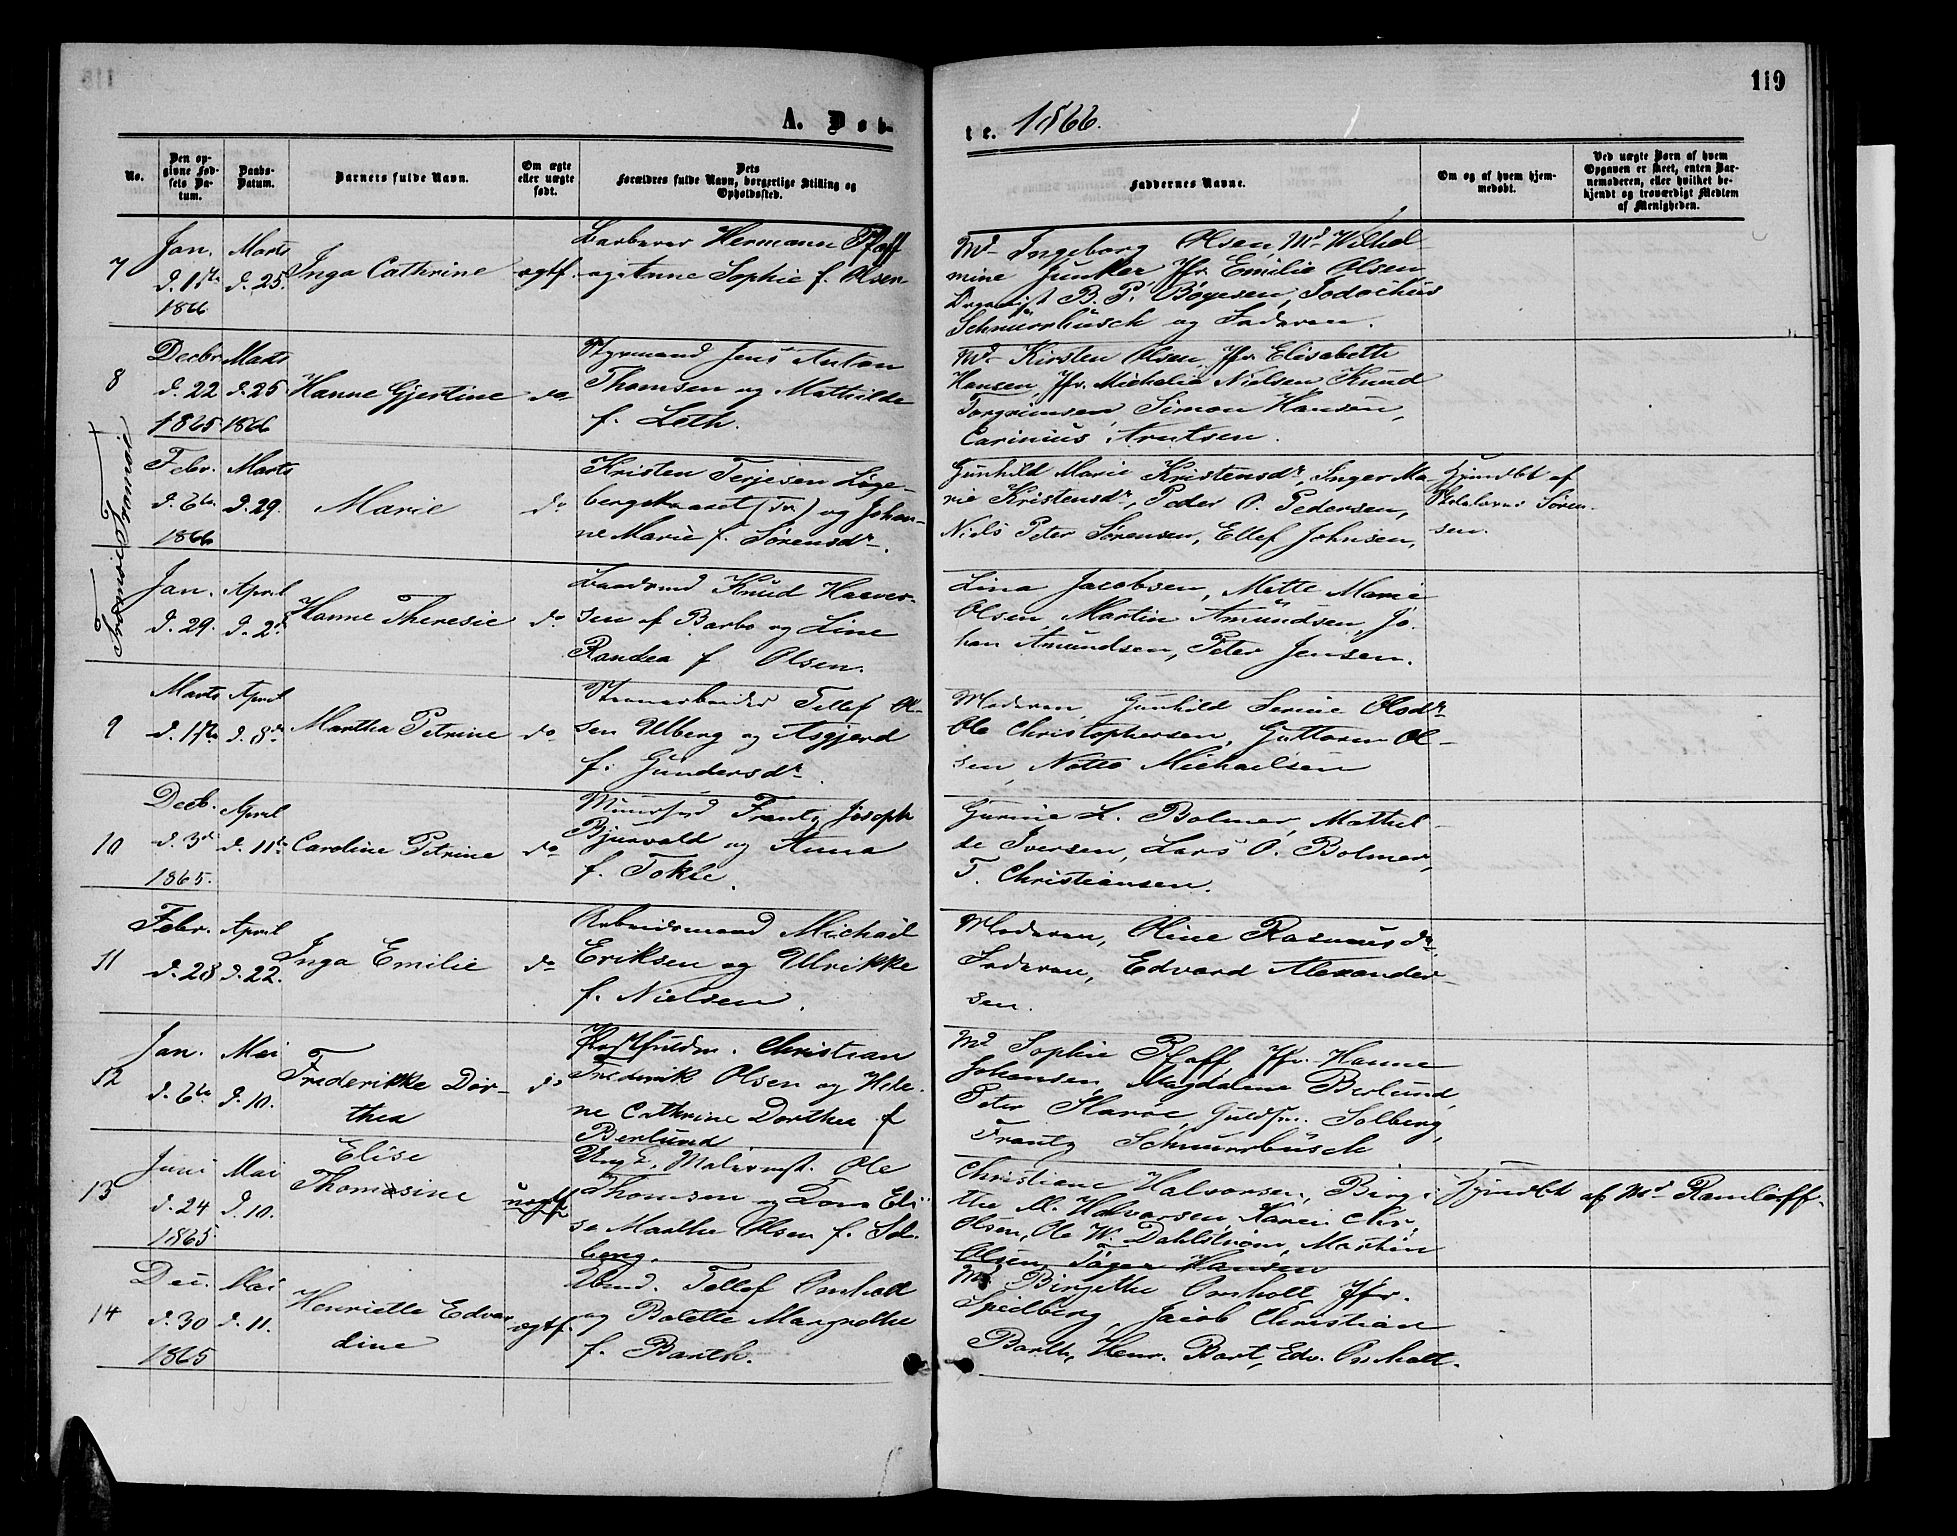 119
A. Døb-
te. 1866.
No.
Den op-
givne Fød-
sels Da-
tum.
Daabs-
Datum.
Barnets fulde Navn.
Om ægte
eller uægte
født.
Dets
Forældres fulde Navn, borgerlige Stilling og
Opholdssted.
Faddernes Navne.
Om og af hvem hjem-
medøbt.
Ved uægte Børn af hvem
Opgaven er skeet, enten Bar-
nemoderen, eller hvilket be-
kjendt og troværdigt Medlem
af Menigheden.
7
Jan.
d. 17de
1866
Marts
d. 25.
Inga Cathrine
ægtf.
Barberer Hermann Pfaff
og Anne Sophie f. Olsen
Md Ingeborg Olsen, Md Wilhel-
mine Junker Jfr. Emilie Olsen
Organist B. P. Bøyesen, Jodochus
Schnurrbusch og Faderen.
8
Decbr
d. 22
1865
Marts
d. 25
1866
Hanne Gjestine
do
Styrmand Jens Anton
Thomsen og Mathilde
f. Leth.
Md Kirsten Olsen, Jfr. Elisabeth
Hansen, Jfr. Michelie Nielsen, Knud
Torgrimsen, Simon Hansen,
Carinius Arntsen.
Tromøe
Febr.
d. 6te
1866
Marts
d. 29.
Marie
do
Kristen Terjesen Linge-
bergskaaset (Tr.) og Johan-
ne Marie f. Sørensdr.
Gunhild Marie Kristensdr, Inger Ma-
rie Kristensdr, Peder O. Pedersen,
Niels Peter Sørensen, Ellef Johnsen,
Hjemdbt af
Skolelærer Søren-
sen.
Tromøe
Jan.
d. 29.
April
d. 2d.
Hanne Theresie
do
Baadsmd Knud Haaver-
sen af Barbo og Line
Randea f. Olsen.
Lina Jacobsen, Mette Marie
Olsen, Martin Amundsen, Jo-
han Amundsen, Peter Jensen.
9
Marts
d. 17de
April
d. 8de
Martha Petrine
do
Steenarbeider Tellef Ol-
sen Ulberg og Asgjerd
f. Gundersdr.
Moderen, Gunhild Serine Olsdr
Ole Christophersen, Guttorm Ol-
sen, Notto Michaelsen
10
Decb.
d. 3de
1865.
April
d. 11te
Caroline Petrine
do
Muursvd Frantz Joseph
Bjurvald og Anna
f. Tokle.
Gurine L. Bolmer, Mathil-
de Iversen, Lars O. Bolmer,
T. Christiansen.
11
Febr.
d. 28
April
d. 22.
Inga Emilie
do
Arbeidsmand Michael
Eriksen og Ulrikke
f. Nielsen.
Moderen, Oline Rasmusdr
Faderen, Edvard Alexander-
sen.
12
Jan.
d. 6te
Mai
d. 10.
Frederikke Dor-
thea
do
Christian
Frederik Olsen og Hele-
ne Cathrine Dorthea f
Berlund
Md Sophie Pfaff, Jfr. Hanne
Johansen, Magdalene Berlund,
Peter Harøe, Guldsm. Solberg,
Frantz Schnurrbusch
13
Juni
d. 24
1865
Mai
d. 10.
Elise
Thomasine
uægtf
Ungk. Malersvd. Ole
Thomsen og Dom Eli-
se Marthe Olsen f. Sol-
berg.
Christiane Halvorsen, Birgi-
the M. Halvorsen, Karen Chr.
Olsen, Ole W. Dahlstrøm, Martin
Olsen, Tøger Hansen
Hjemdbt af Md Ramlorff.
14
Dec.
d. 30
1865
Mai
d. 11.
Henriette Edvar-
dine
ægtf.
Tellef Omholt
og Bolette Margrethe
f. Barth.
Md Birgithe Omholt Jfr.
Speilberg, Jacob Christian
Barth, Henr. Bart, Edv. Omholt.